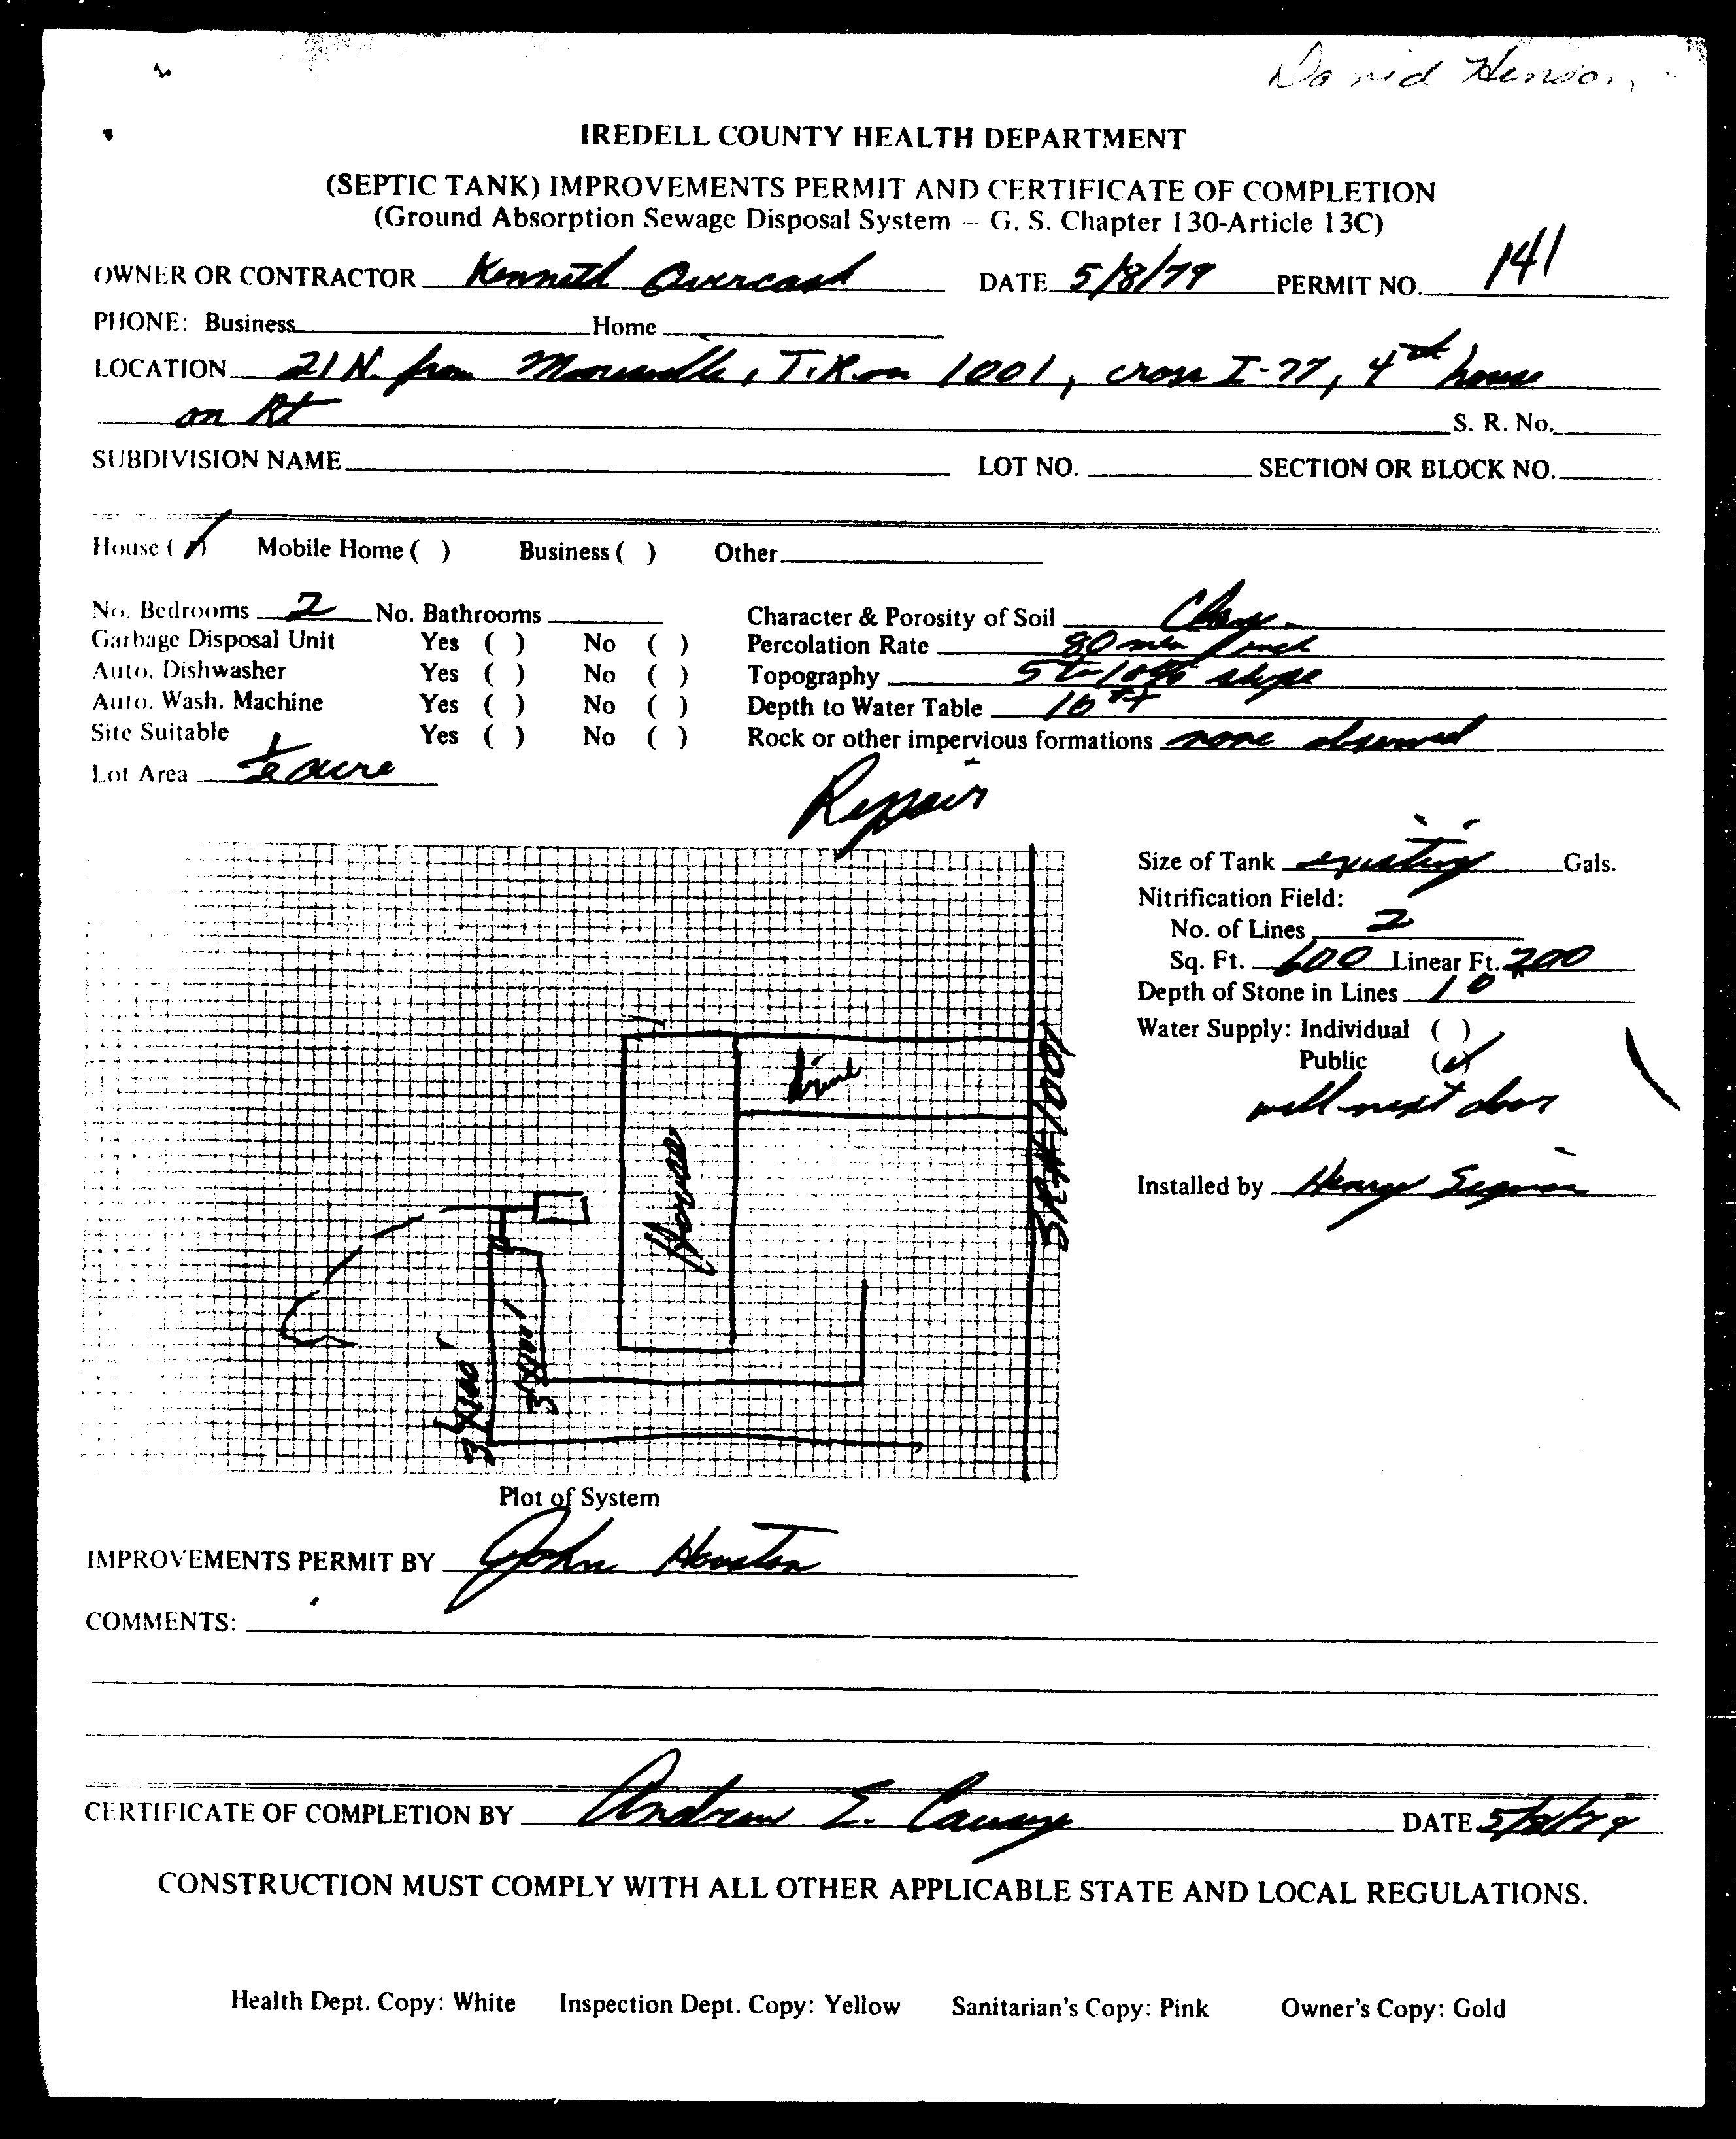 David Henson
IREDELL COUNTY HEALTH DEPARTMENT
(SEPTIC TANK) IMPROVEMENTS PERMIT AND CERTIFICATE OF COMPLETION
(Ground Absorption Sewage Disposal System — G. S. Chapter 130-Article 13C)
OWNER OR CONTRACTOR Kenneth Overcash DATE 5/8/79 PERMIT NO. 141
PHONE: Business Home
LOCATION 21 N. from Mooresville, T.R. on 1001, cross I-77, 4th house
on Rt S. R. No.
SUBDIVISION NAME LOT NO. SECTION OR BLOCK NO.
House (✓) Mobile Home ( ) Business ( ) Other
No. Bedrooms 2 No. Bathrooms Character & Porosity of Soil Clay
Garbage Disposal Unit Yes ( ) No ( ) Percolation Rate 80 min / inch
Auto. Dishwasher Yes ( ) No ( ) Topography 5 to 10% slope
Auto. Wash. Machine Yes ( ) No ( ) Depth to Water Table 10 ft
Site Suitable Yes ( ) No ( ) Rock or other impervious formations none observed
Lot Area 1/2 acre
Repair
Size of Tank existing Gals.
Nitrification Field:
No. of Lines 2
Sq. Ft. 600 Linear Ft. 200
Depth of Stone in Lines 10"
Water Supply: Individual ( )
Public (✓)
well next door
Installed by Henry
drive
House
SR#1001
3'X100'
3'X100'
Plot of System
IMPROVEMENTS PERMIT BY John Houston
COMMENTS:
CERTIFICATE OF COMPLETION BY Andrew E. DATE 5/8/79
CONSTRUCTION MUST COMPLY WITH ALL OTHER APPLICABLE STATE AND LOCAL REGULATIONS.
Health Dept. Copy: White Inspection Dept. Copy: Yellow Sanitarian's Copy: Pink Owner's Copy: Gold